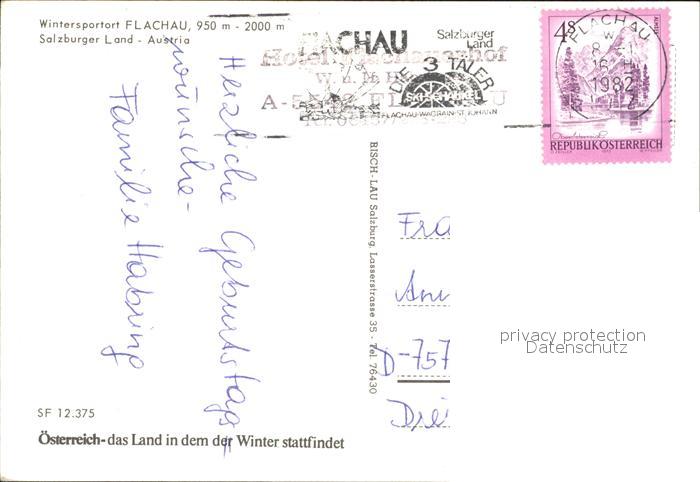 Wintersportort FLACHAU, 950 m - 2000 m
Salzburger Land - Austria
FLACHAU
Salzburger
Land
DIE 3 TÄLER
SKISCHAUKEL
FLACHAU-WAGRAIN-ST. JOHANN
FLACHAU
1982
4S
REPUBLIK ÖSTERREICH
Herzliche Geburtstags-
wünsche-
Familie Habring
RISCH-LAU Salzburg, Lasserstrasse 35 - Tel. 76430
Fra
D-757
privacy protection
Datenschutz
SF 12.375
Österreich-das Land in dem der Winter stattfindet